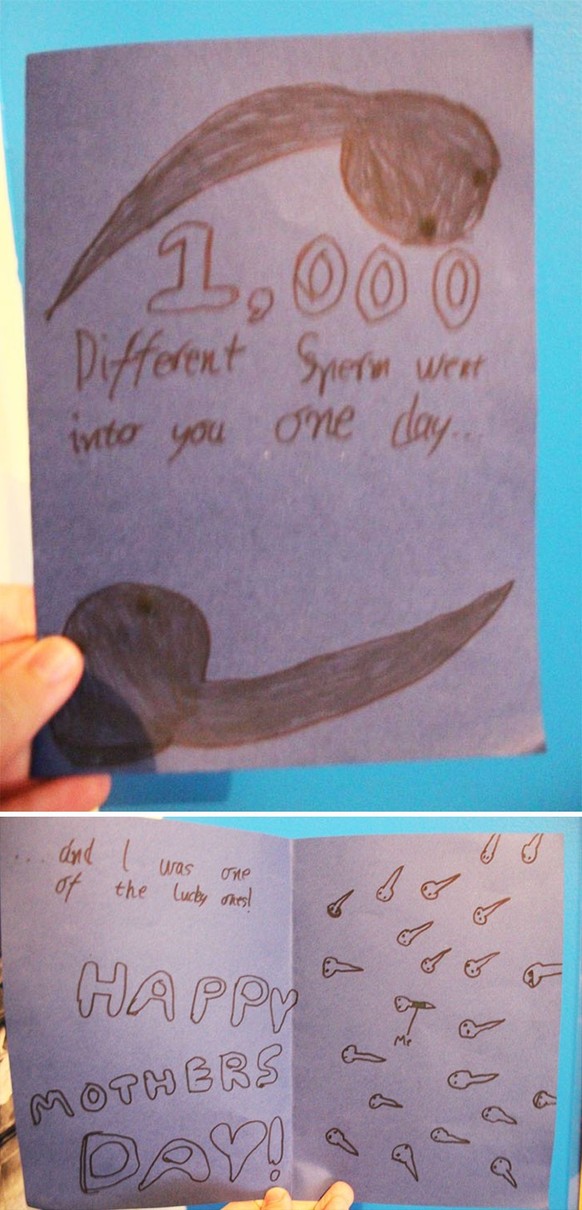 1,000
Different Sperm went
into you one day...
...and I was one
of the lucky ones!
HAPPY
MOTHERS
DAY!
Me